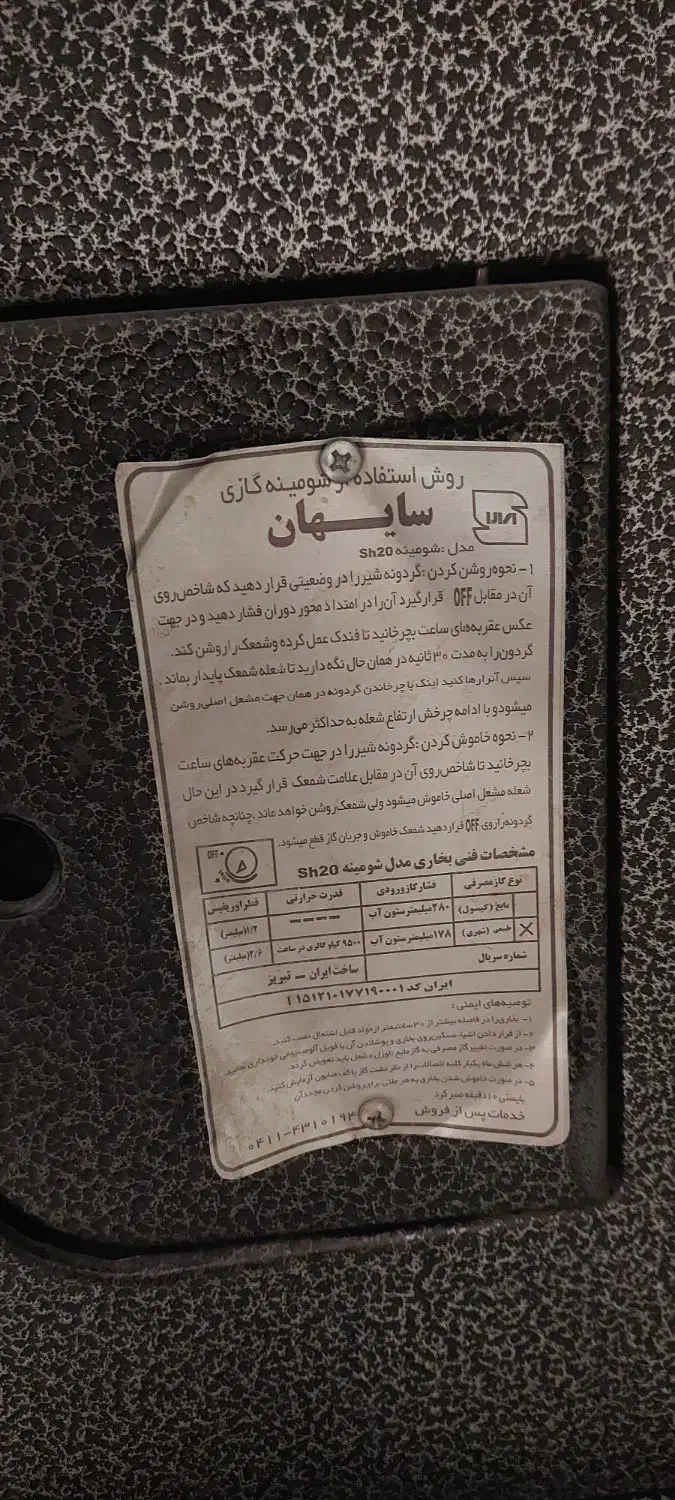 روش استفاده از شومینه گازی
سایهان
مدل :شومینه Sh20
۱- نحوه روشن کردن :گردونه شیر را در وضعیتی قرار دهید که شاخص روی
آن در مقابل OFF قرار گیرد آن را در امتداد محور دوران فشار دهید و در جهت
عکس عقربه های ساعت بچرخانید تا فندک عمل کرده وشمعک را روشن کند.
گردون را به مدت ۳۰ ثانیه در همان حال نگه دارید تا شعله شمعک پایدار بماند .
سپس آنرا رها کنید اینک با چرخاندن گردونه در همان جهت مشعل اصلی روشن
میشود و با ادامه چرخش ارتفاع شعله به حداکثر می رسد.
۲- نحوه خاموش کردن :گردونه شیر را در جهت حرکت عقربه های ساعت
بچرخانید تا شاخص روی آن در مقابل علامت شمعک قرار گیرد در این حال
شعله مشعل اصلی خاموش میشود ولی شمعک روشن خواهد ماند .چنانچه شاخص
گردونه را روی OFF قرار دهید شمعک خاموش و جریان گاز قطع میشود.
OFF
مشخصات فنی بخاری مدل شومینه Sh20
نوع گاز مصرفی فشار گاز ورودی قدرت حرارتی قطر اوریفیس
مایع (کپسول) ۲۸۰ میلیمتر ستون آب ---- ۱/۲(میلیمتر)
X طبیعی (شهری) ۱۷۸ میلیمتر ستون آب ۹۵۰۰ کیلو کالری در ساعت ۲/۶(میلیمتر)
شماره سریال ساخت ایران – تبریز
ایران کد ۱۵۱۲۱۰۱۷۷۱۹۰۰۰۱
توصیه های ایمنی :
۱- بخاری را در فاصله بیشتر از ۳۰ سانتیمتر از مواد قابل اشتعال نصب کنید.
۲- از قرار دادن اشیا، سنگین روی بخاری و پوشاندن آن با فویل آلومینیومی خودداری نمائید.
۳- در صورت تغییر گاز مصرفی به گاز مایع نازل مشعل باید تعویض گردد
۴- هر شش ماه یکبار کلیه اتصالات را از نظر نشت گاز با کف صابون آزمایش کنید.
۵- در صورت خاموش شدن بخاری به هر علتی برای روشن کردن مجدد آن
بایستی ۱۰ دقیقه صبر کرد
خدمات پس از فروش ۰۴۱۱-۴۳۱۰۱۹۴